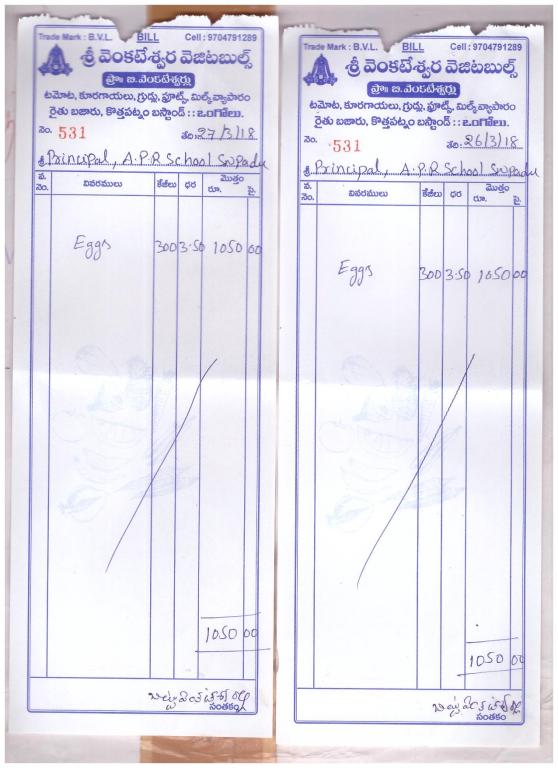 Trade Mark : B.V.L. BILL Cell : 9704791289
శ్రీ వెంకటేశ్వర వెజిటబుల్స్
ప్రొః బి.వెంకటేశ్వర్లు
టమోట, కూరగాయలు, గ్రుడ్లు, ఫ్రూట్స్, మిల్క్ వ్యాపారం
రైతు బజారు, కొత్తపట్నం బస్టాండ్ : : ఒంగోలు.
నెం. 531 తేది: 27/3/18
శ్రీ Principal, A.P.R School
వ. నెం. వివరములు కేజీలు ధర మొత్తం రూ. పై.
Eggs 300 3.50 1050 00
1050 00
సంతకం
Trade Mark : B.V.L. BILL Cell : 9704791289
శ్రీ వెంకటేశ్వర వెజిటబుల్స్
ప్రొః బి.వెంకటేశ్వర్లు
టమోట, కూరగాయలు, గ్రుడ్లు, ఫ్రూట్స్, మిల్క్ వ్యాపారం
రైతు బజారు, కొత్తపట్నం బస్టాండ్ : : ఒంగోలు.
నెం. 531 తేది: 26/3/18
శ్రీ Principal, A.P.R School
వ. నెం. వివరములు కేజీలు ధర మొత్తం రూ. పై.
Eggs 300 3.50 1050 00
1050 00
సంతకం